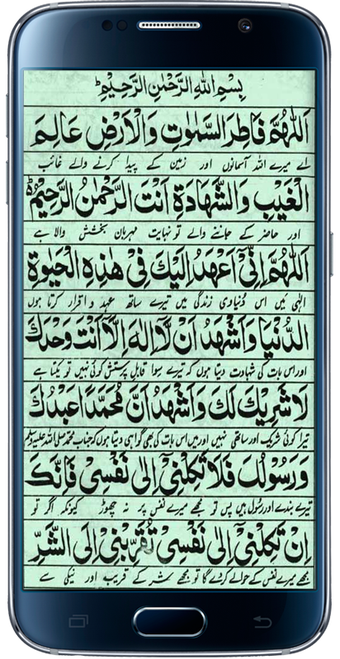 بِسْمِ اللهِ الرَّحْمٰنِ الرَّحِيْمِ
اَللّٰهُمَّ فَاطِرَ السَّمٰوٰتِ وَالْاَرْضِ عَالِمَ
اے میرے اللہ آسمانوں اور زمین کے پیدا کرنے والے غائب
الْغَيْبِ وَالشَّهَادَةِ اَنْتَ الرَّحْمٰنُ الرَّحِيْمُ
اور حاضر کے جاننے والے تو نہایت مہربان بخشش والا ہے
اَللّٰهُمَّ اِنِّيْ اَعْهَدُ اِلَيْكَ فِيْ هٰذِهِ الْحَيٰوةِ
الٰہی میں اس دُنیاوی زندگی میں تیرے ساتھ عہد و اقرار کرتا ہوں
الدُّنْيَا وَاَشْهَدُ اَنْ لَّا اِلٰهَ اِلَّا اَنْتَ وَحْدَكَ
اور اس بات کی شہادت دیتا ہوں کہ تیرے سوا قابل پرستش کوئی نہیں تو یکتا ہے
لَا شَرِيْكَ لَكَ وَاَشْهَدُ اَنَّ مُحَمَّدًا عَبْدُكَ
تیرا کوئی شریک اور ساتھی نہیں اور میں اس بات کی بھی گواہی دیتا ہوں کہ جناب محمد صلی اللہ علیہ وسلم
وَرَسُوْلُكَ فَلَا تَكِلْنِيْ اِلٰى نَفْسِيْ فَاِنَّكَ
تیرے بندے اور رسول ہیں پس تو مجھے میرے نفس پر نہ چھوڑ کیونکہ اگر تو
اِنْ تَكِلْنِيْ اِلٰى نَفْسِيْ تُقَرِّبْنِيْ اِلَى الشَّرِّ
مجھے میرے نفس کے حوالے کر دے گا تو مجھے شر کے قریب اور نیکی سے